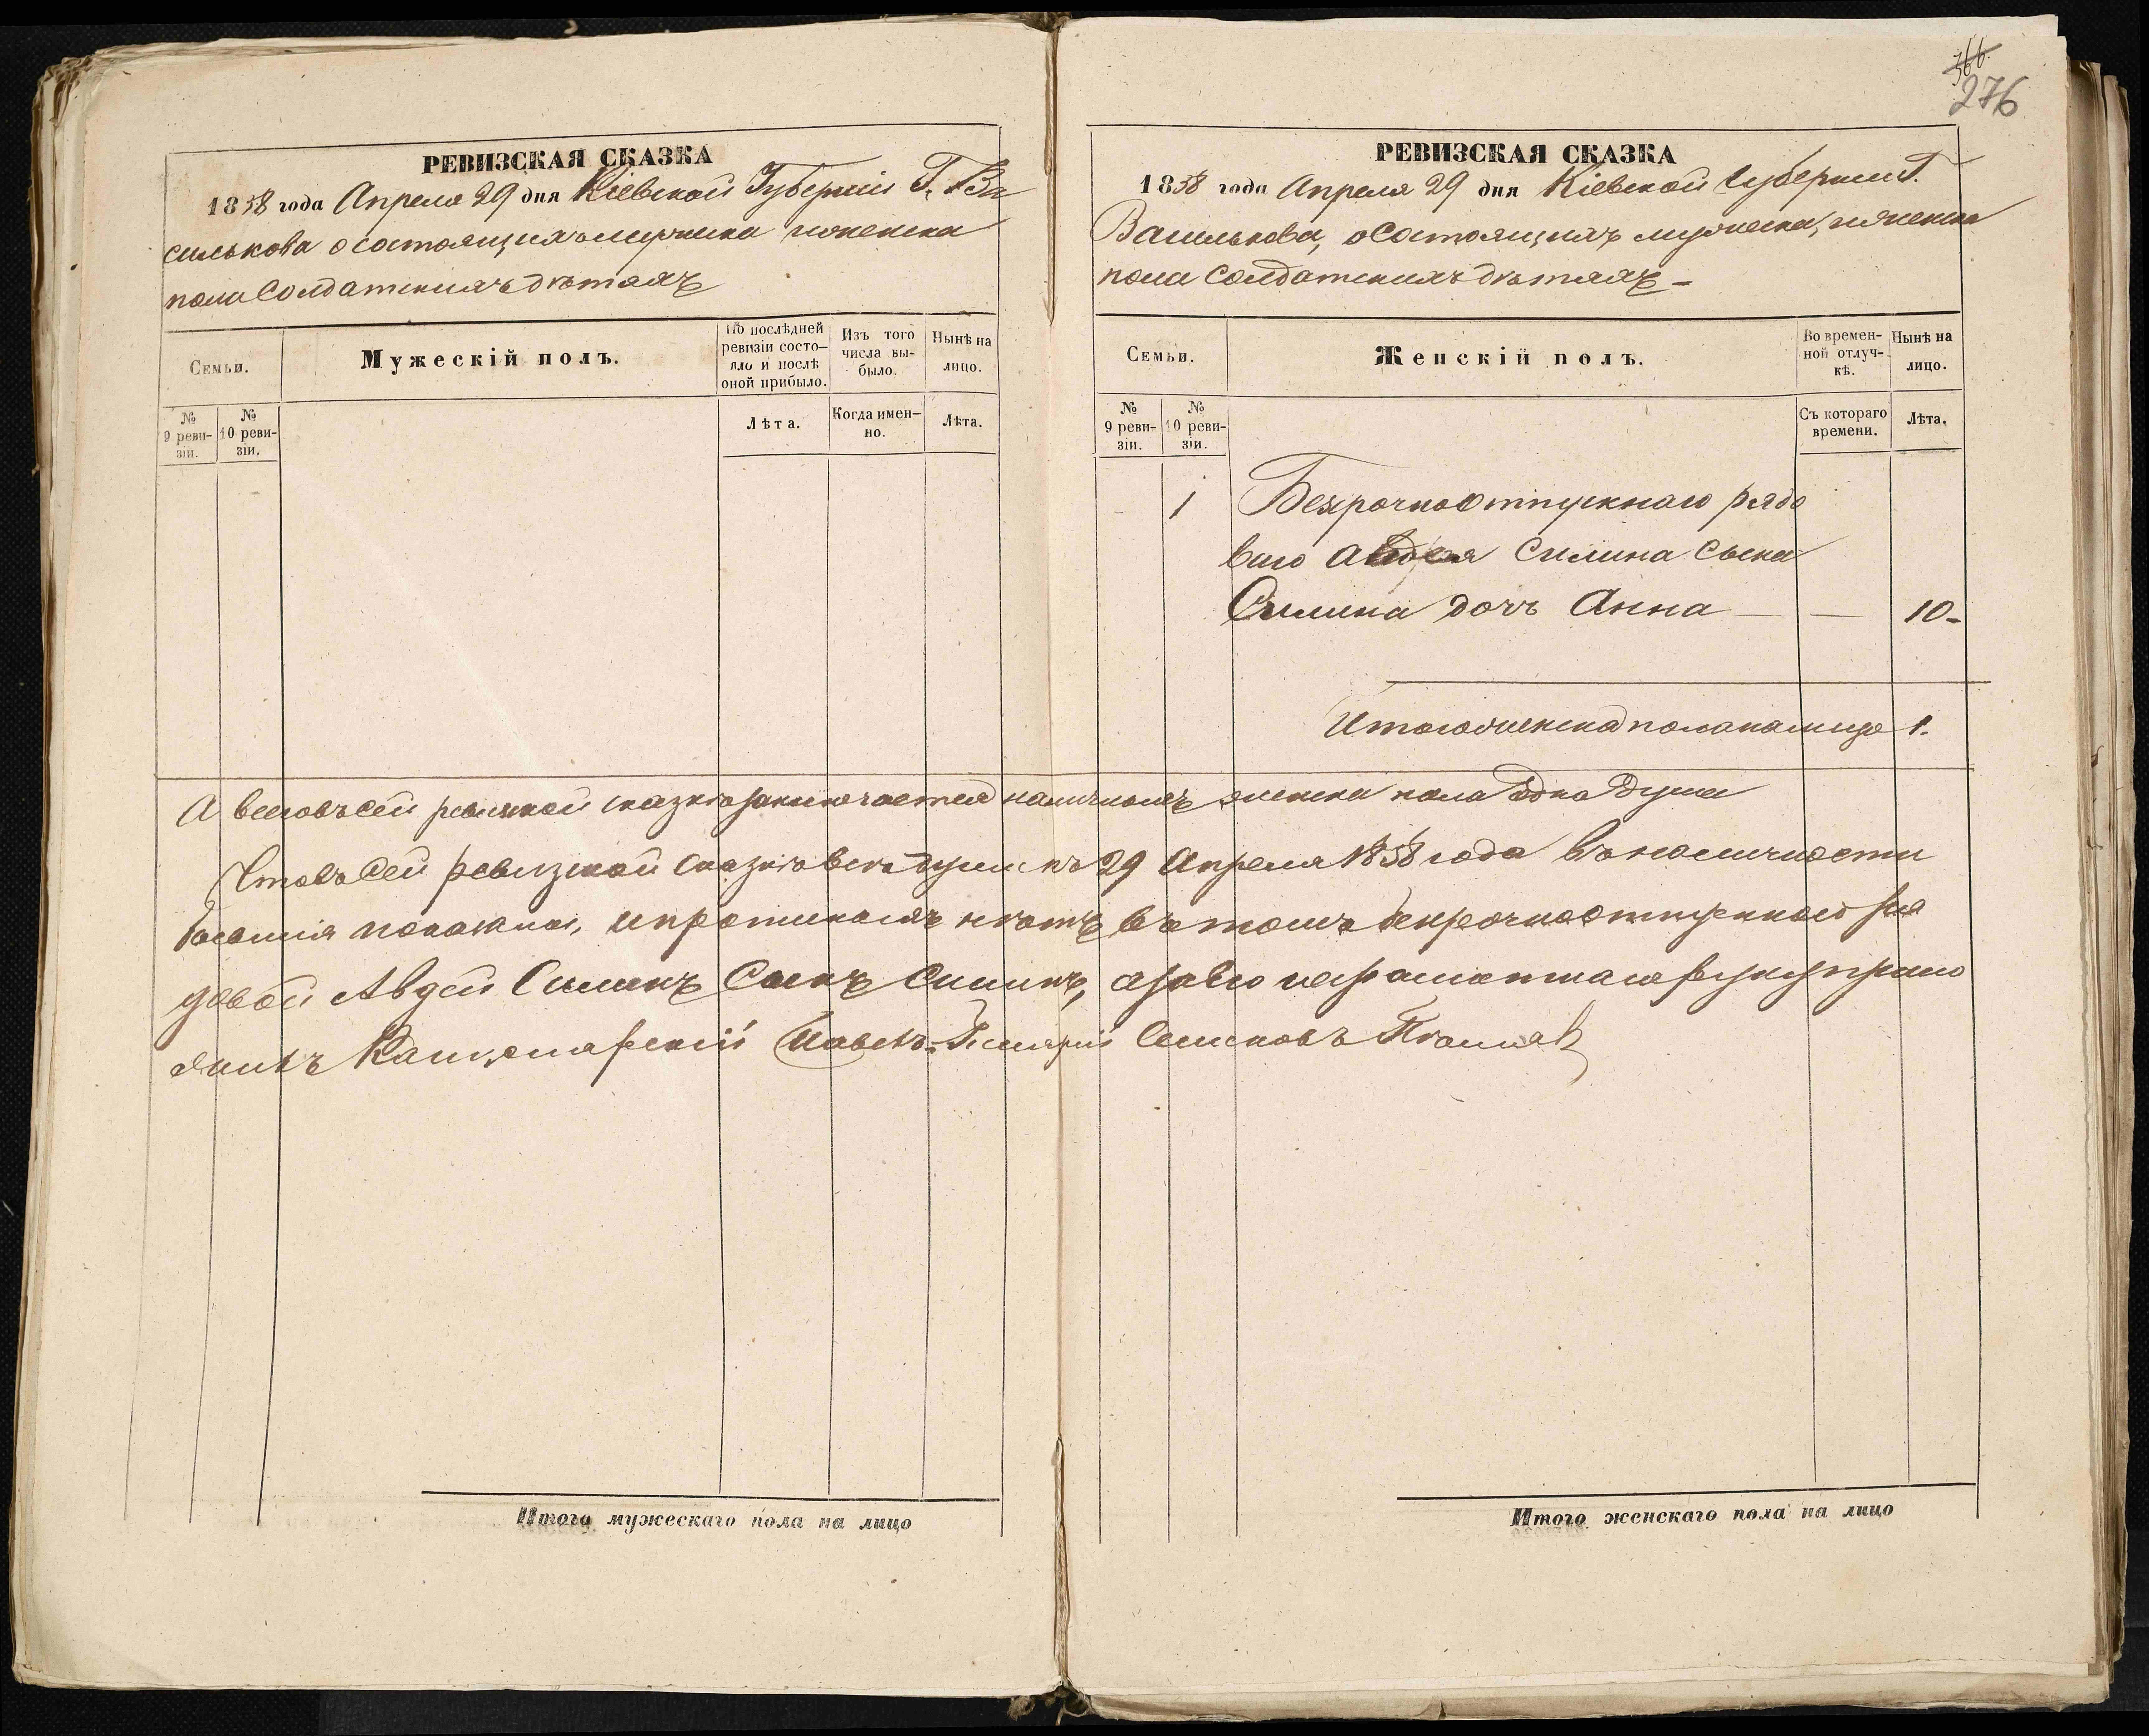 366.
276
РЕВИЗСКАЯ СКАЗКА
1858 года Апреля 29 дня Кіевской Губерніи Г. Ва
силькова о состоящихъ мужеска и женска
пола Солдатскихъ дѣтяхъ
Семьи.
Мужескій полъ.
По послѣдней ревизіи состо-яло и послѣ оной прибыло.
Изъ того числа вы-было.
Нынѣ на лицо.
№ 9 реви-зіи.
№ 10 реви-зіи.
Лѣта.
Когда имен-но.
Лѣта.
РЕВИЗСКАЯ СКАЗКА
1858 года Апреля 29 дня Кіевской Губерніи Г.
Василькова, о состоящихъ мужеска, и женска
пола Солдатскихъ дѣтяхъ –
Семьи.
Женскій полъ.
Во времен-ной отлуч-кѣ.
Нынѣ на лицо.
№ 9 реви-зіи.
№ 10 реви-зіи.
Съ котораго времени.
Лѣта.
1 Безрочноотпускнаго рядо
ваго Авдея Силина Сына
Силина дочь Анна — — 10-
Итого женска пола налицо 1.
А всего въ сей ревизской сказкѣ заключается наличныхъ женска пола одна душа
Что въ Сей ревизской сказкѣ всѣ души къ 29 Апреля 1858 года въ наличности
показаны, и нѣтъ въ томъ безрочноотпускной ря
довой Авдей Силинъ Сынъ Силинъ, а за его неграмотнаго руку прило
жилъ Канцелярскій Семеновъ
Итого мужескаго пола на лицо
Итого женскаго пола на лицо